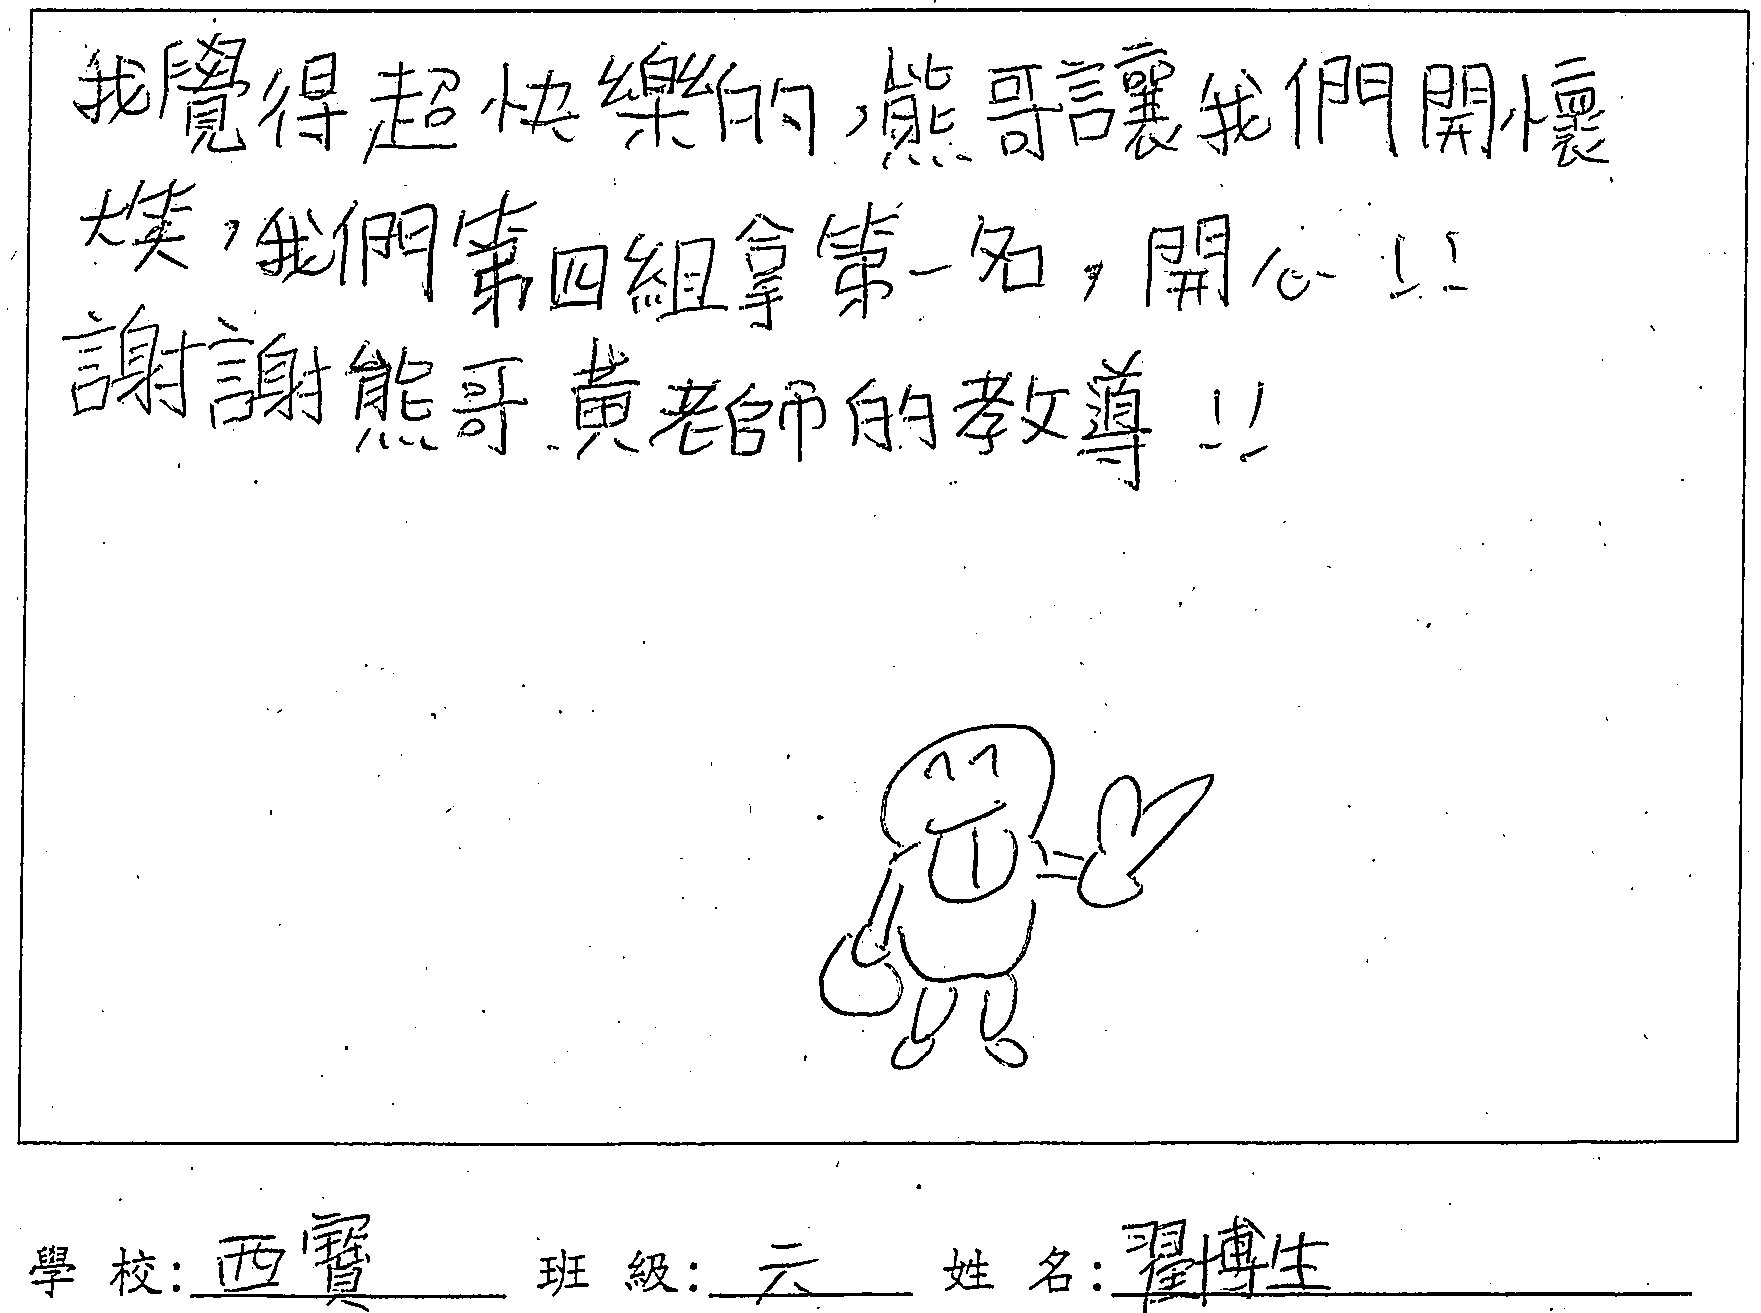 我覺得超快樂的，熊哥讓我們開懷
大笑，我們第四組拿第一名，開心!!
謝謝熊哥、黃老師的教導!!
學校:西寶 班級:六 姓名:翟博生